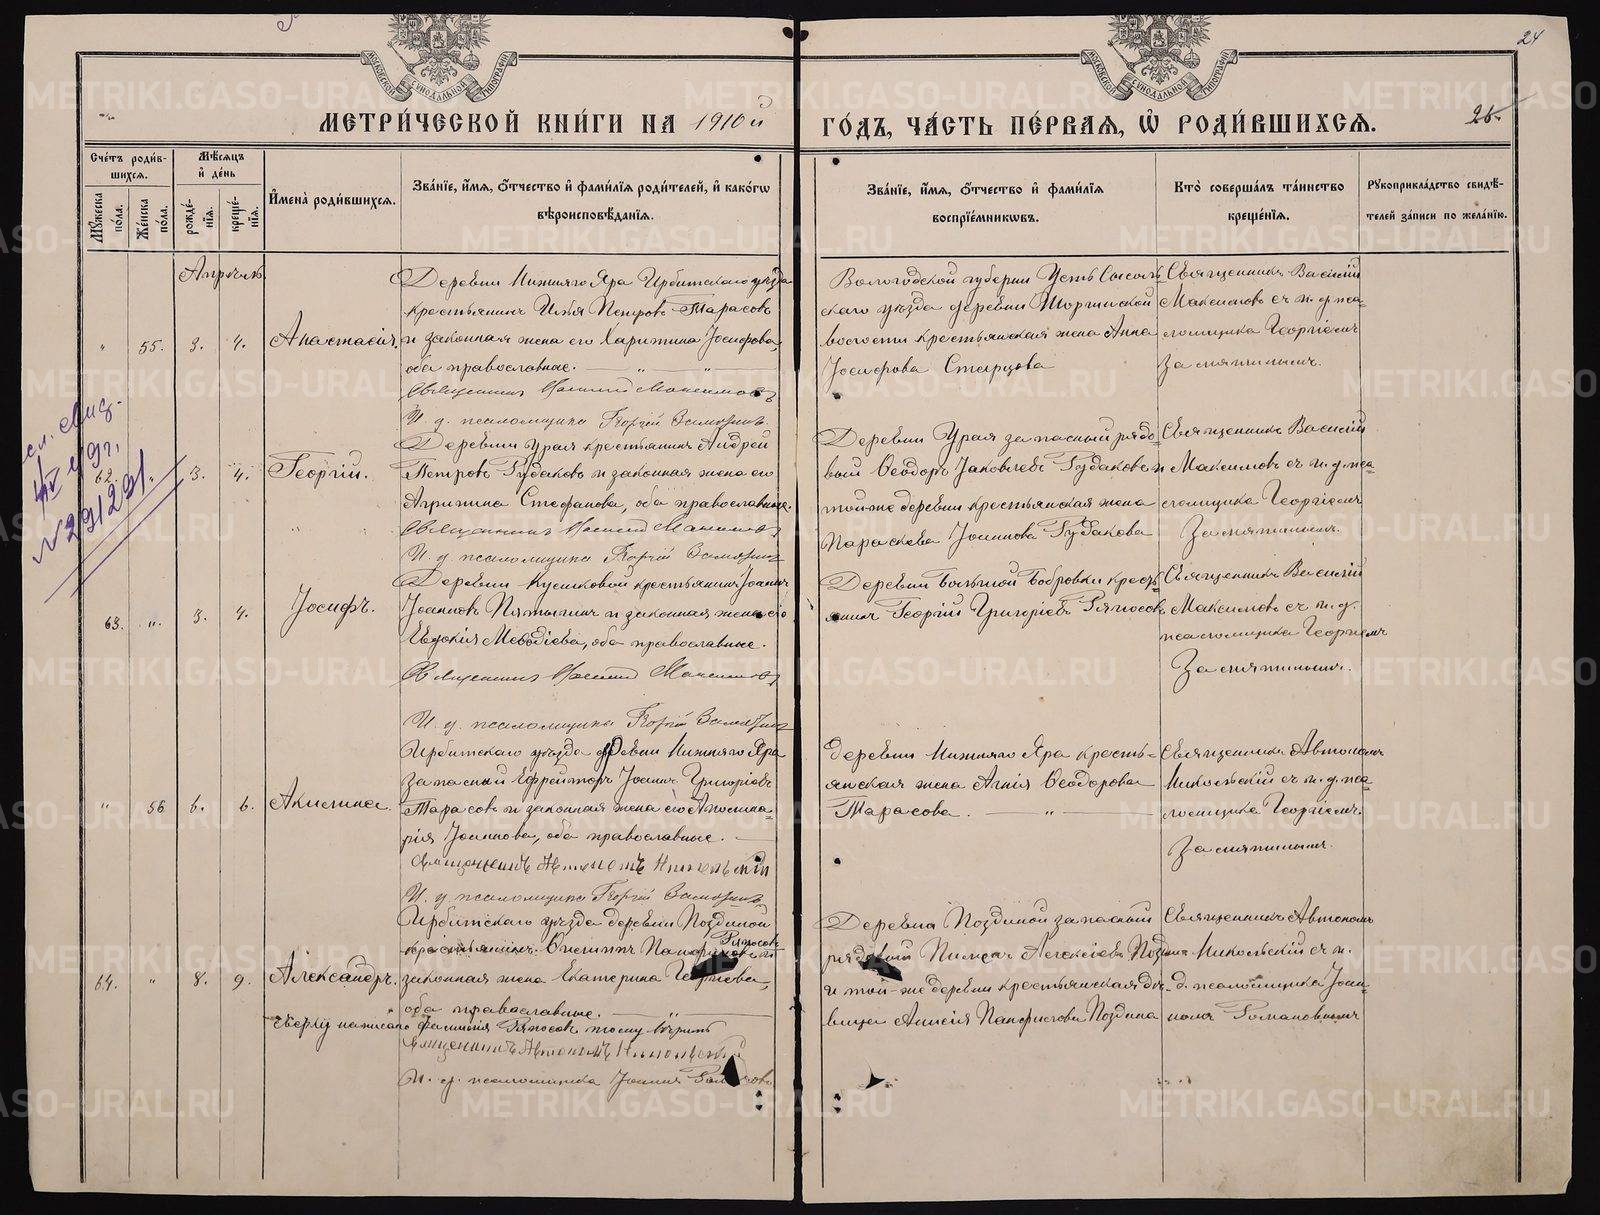 24
МОСКОВСКОЙ СѴНОДАЛЬНОЙ ТИПОГРАФІИ
МОСКОВСКОЙ СѴНОДАЛЬНОЙ ТИПОГРАФІИ
МЕТРИ́ЧЕСКОЙ КНИ́ГИ НА 1910й ГО́ДЪ, ЧА́СТЬ ПЕ́РВАѦ, Ѡ҆ РОДИ́ВШИХСѦ.
25.
Сче́тъ роди́в-
шихся.
Мꙋжеска по́ла.
Же́нска по́ла.
Мѣ́сяцъ и҆ де́нь
рожде́нїя.
креще́нїя.
И҆мена̀ роди́вшихся.
Зва́нїе, и҆́мя, ѻ҆́тчество и҆ фами́лїя роди́телей, и҆ како́гѡ
вѣроисповѣ́данїя.
Зва́нїе, и҆́мя, ѻ҆́тчество и҆ фами́лїя
воспрїе́мникѡвъ.
Кто̀ соверша́лъ та́инство
креще́нїя.
Рꙋкоприкла́дство свидѣ́-
телей за́писи по жела́нїю.
Апрѣль
" 55. 3. 4. Анастасія.
Деревни Нижняго Яра Ирбитскаго уѣзда
крестьянинъ Илья Петровъ Тарасовъ
и законная жена его Харитина Іосифова,
оба православные. — " — "
Священникъ Василій Максимовъ
И. д. псаломщика Георгій Замятинъ.
Вологодской губерніи Усть Сысоль-
скаго уѣзда деревни
крестьянская жена Анна
Іосифова Старцова
Священникъ Василій
Максимовъ съ и. д. пса-
ломщика Георгіемъ
Замятинымъ.
62. 3. 4. Георгій.
Деревни Урая крестьянинъ Андрей
Петровъ Рудаковъ и законная жена его
Агрипина Стефанова, оба православные.
Священникъ Василій Максимовъ
И. д. псаломщика Георгій Замятинъ
Деревни Урая запасный рядо-
вый Ѳеодоръ Іаковлевъ Рудаковъ и
той-же деревни крестьянская жена
Параскева Іоаннова Рудакова
Священникъ Василій
Максимовъ съ и. д. пса-
ломщика Георгіемъ
Замятинымъ.
63. " 3. 4. Іосифъ.
Деревни Кусиковой крестьянинъ Іоаннъ
Іоанновъ Пятыгинъ и законная жена его
Евдокія Меѳодіева, оба православные.
Священникъ Василій Максимовъ
И. д. псаломщика Георгій Замятинъ
Деревни Большой Бобровки кресть-
янинъ Георгій Григоріевъ Ряпосовъ
Священникъ Василій
Максимовъ съ и. д.
псаломщика Георгіемъ
Замятинымъ.
" 56 6. 6. Акилина.
Ирбитскаго уѣзда деревни Нижняго Яра
запасный Ефрейторъ Іоаннъ Григоріевъ
Тарасовъ и законная жена его Аполина-
рія Іоаннова, оба православные. —
Священникъ Автономъ Никольскій
И. д. псаломщика Георгій Замятинъ.
Деревни Нижняго Яра кресть-
янская жена Агнія Ѳеодорова
Тарасова. — " —
Священникъ Автономъ
Никольскій съ и. д. пса-
ломщика Георгіемъ
Замятинымъ.
64. " 8. 9. Александръ.
Ирбитскаго уѣзда деревни Поздиной
Ряпосовъ
крестьянинъ и
законная жена Екатерина Георгіева,
оба православные. — " —
Сверху написано фамилія Ряпосовъ тому вѣрить
Священникъ Автономъ Никольскій
И. д. псаломщика Іоаннъ
Деревни Поздиной запасный
рядовый Пименъ Алексіевъ Поздинъ
и той-же деревни крестьянская дѣ-
вица Анисія Поздина
Священникъ Автономъ
Никольскій съ и.
д. псаломщика Іоан-
номъ Романовымъ
№ 291291.
METRIKI.GASO-URAL.RU